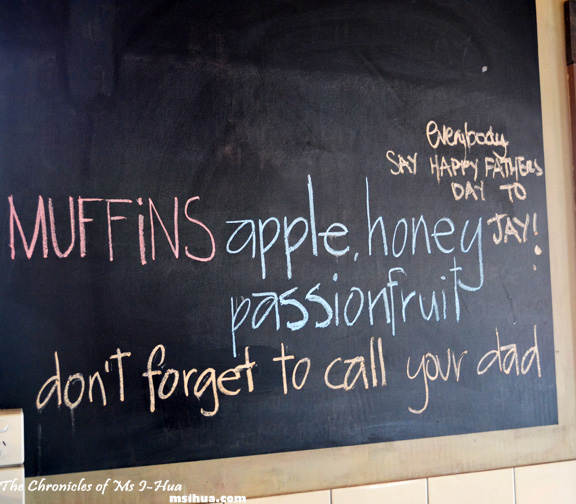 everybody
SAY HAPPY FATHERS
DAY TO
JAY!
MUFFiNS apple, honey
passionfruit
don't forget to call your dad
The Chronicles of Ms I-Hua
msihua.com